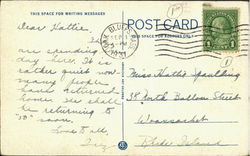 THIS SPACE FOR WRITING MESSAGES
POST CARD
THIS SPACE FOR ADDRESS ONLY
Dear Hattie,
are spending
day here. It is
rather quiet now
many people
have returned
home. We shall
be returning on
"10" soon.
Love to all,
OAK BLUFFS
SEP
1
Miss Hattie Spaulding
38 North Ballou Street
Woonsocket
Rhode Island